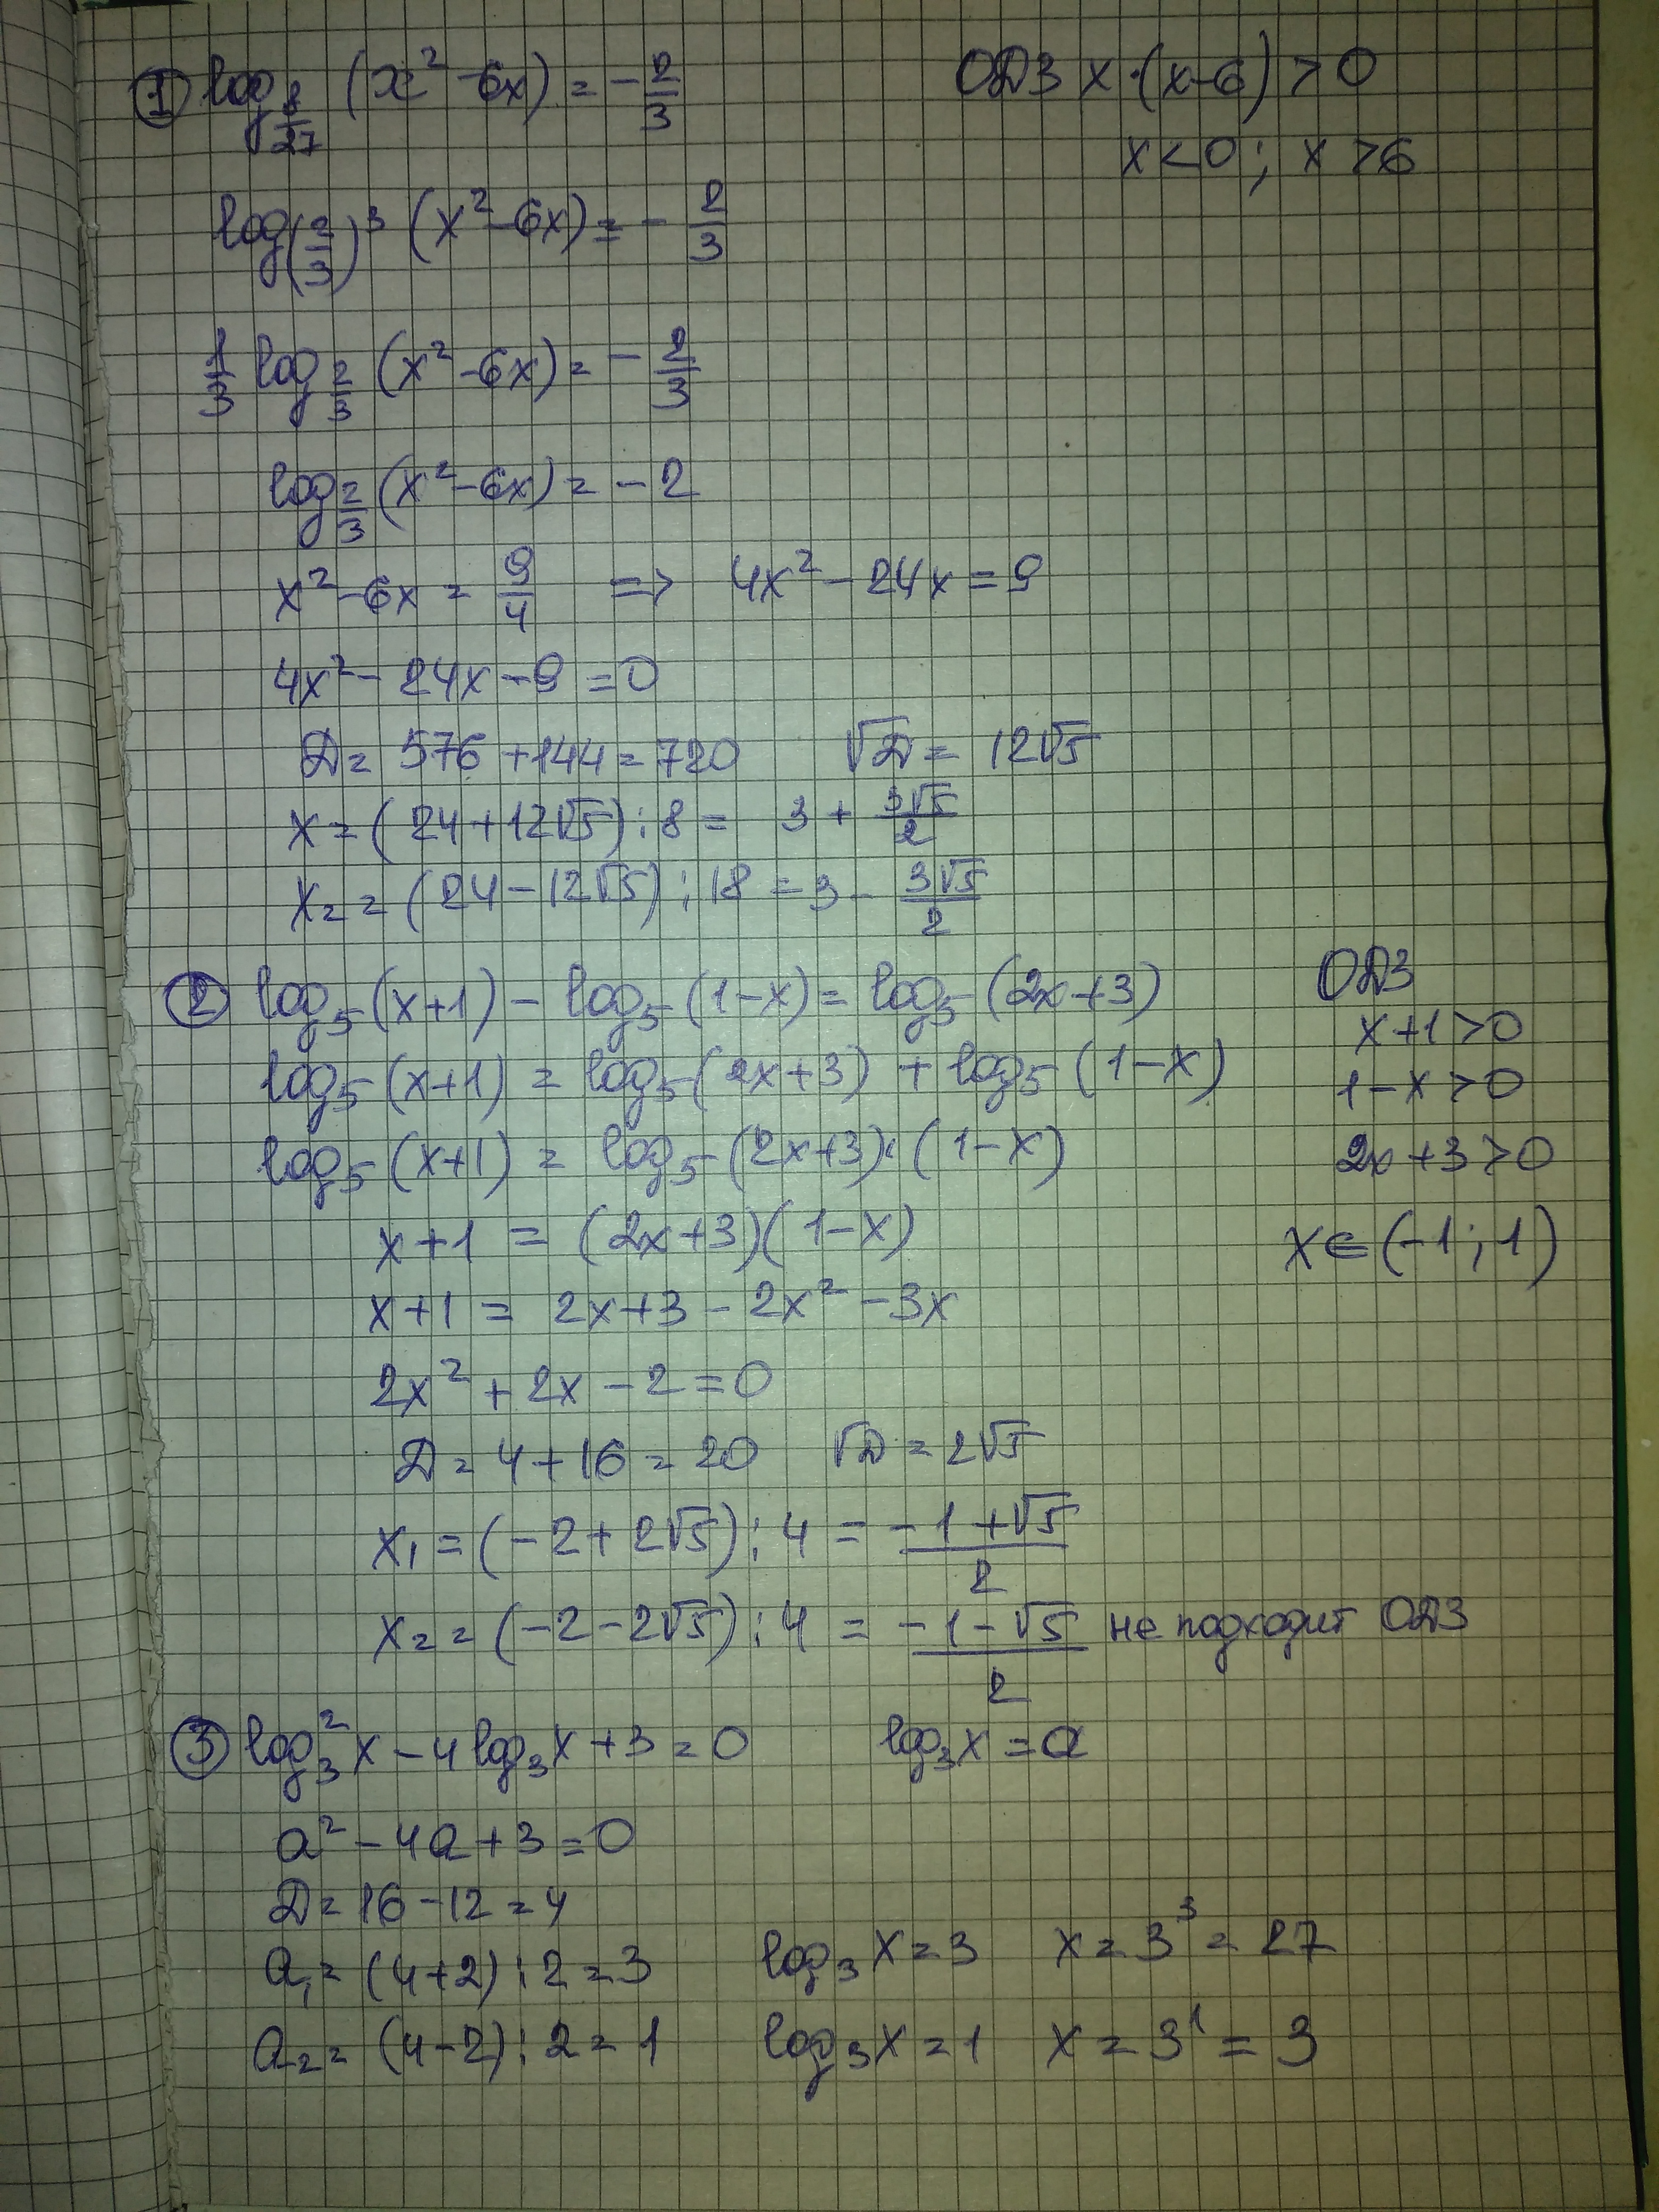 ① log_{8/27} (x² - 6x) = -2/3 ОДЗ x·(x-6) > 0
x < 0; x > 6
log_{(2/3)³} (x² - 6x) = -2/3
1/3 log_{2/3} (x² - 6x) = -2/3
log_{2/3} (x² - 6x) = -2
x² - 6x = 9/4 => 4x² - 24x = 9
4x² - 24x - 9 = 0
Д = 576 + 144 = 720 √Д = 12√5
x = (24 + 12√5) : 8 = 3 + 3√5/2
x₂ = (24 - 12√5) : 18 = 3 - 3√5/2
② log₅ (x+1) - log₅ (1-x) = log₅ (2x+3) ОДЗ
x+1 > 0
log₅ (x+1) = log₅ (2x+3) + log₅ (1-x)
1-x > 0
log₅ (x+1) = log₅ (2x+3)·(1-x)
2x+3 > 0
x+1 = (2x+3)(1-x)
x ∈ (-1; 1)
x+1 = 2x+3 - 2x² - 3x
2x² + 2x - 2 = 0
Д = 4 + 16 = 20 √Д = 2√5
x₁ = (-2 + 2√5) : 4 = (-1+√5)/2
x₂ = (-2 - 2√5) : 4 = (-1-√5)/2 не подходит ОДЗ
③ log₃² x - 4 log₃ x + 3 = 0 log₃ x = a
a² - 4a + 3 = 0
Д = 16 - 12 = 4
a₁ = (4+2) : 2 = 3 log₃ x = 3 x = 3³ = 27
a₂ = (4-2) : 2 = 1 log₃ x = 1 x = 3¹ = 3